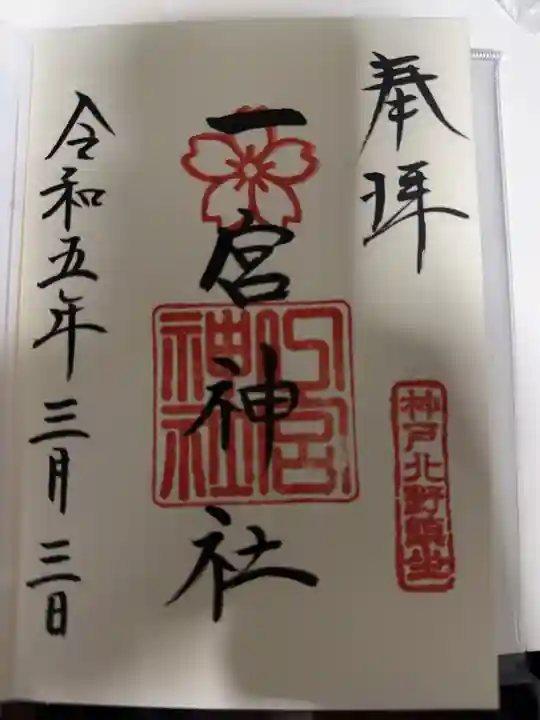 奉拝
神戸北野鎮坐
一宮神社
一宮神社
令和五年三月三日